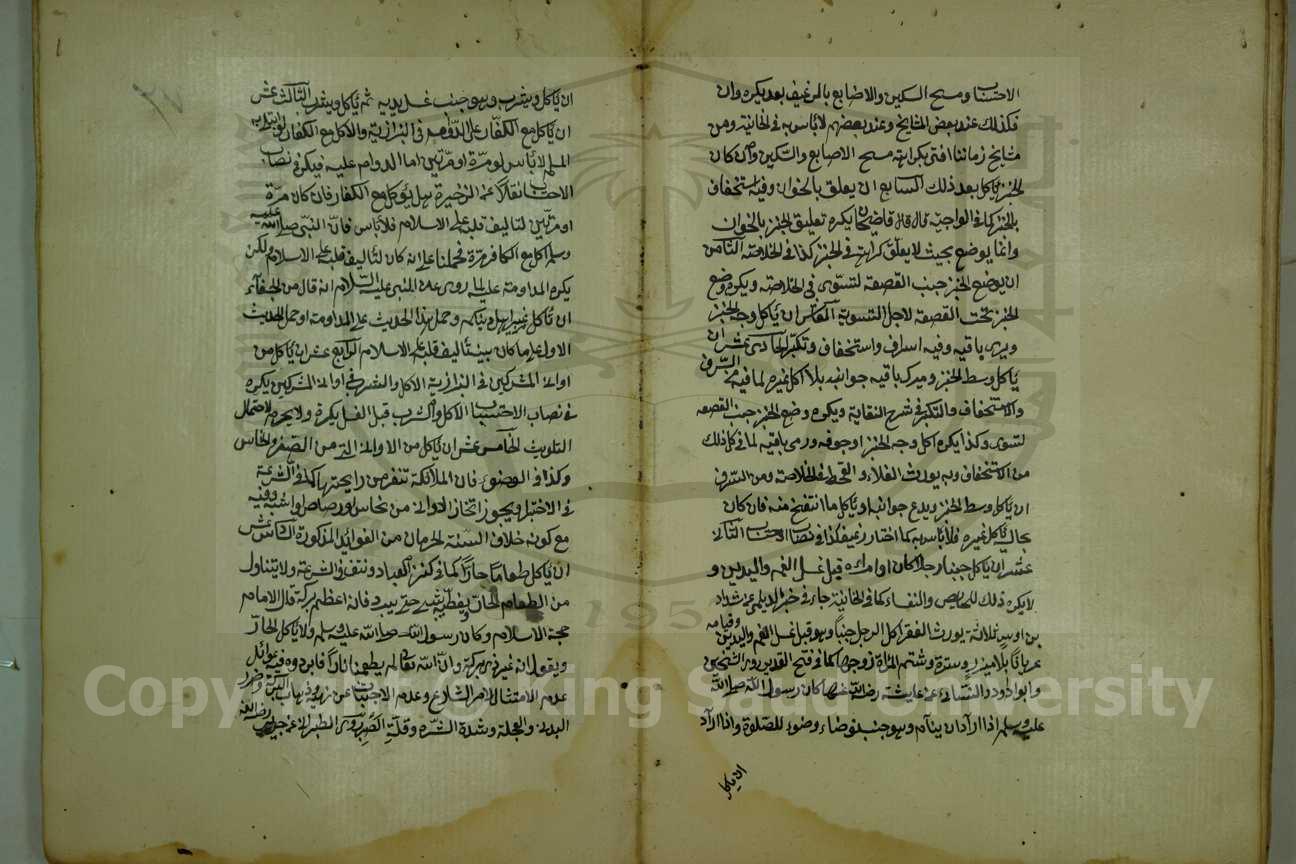 الاحتساب ومسح السكين والاصابع بالرغيف بعد يكره وان
فكذلك عند بعض المشايخ وعند بعضهم لا بأس به في الخانية ومن
مشايخ زماننا افتى بكراهة مسح الاصابع والسكين وان كان
الخبز يأكل بعد ذلك السابع ان يعلق بالخوان وفيه استخفاف
بالخبز كما في الواجيه قال قاضيخان يكره تعليق الخبز بالخوان
وانما يوضع بحيث لا يعلق كراهة في الخبز كذا في الخلاصة الثامن
ان يوضع الخبز جنب القصعة لتستوى في الخلاصة ويكره وضع
الخبز تحت القصعة لاجل التسوية التاسع ان يأكل وجه الخبز
ويرمى باقيه وفيه اسراف واستخفاف وتكبر الحادى عشر ان
يأكل وسط الخبز ويترك باقيه جوانبه بلا اكل غيره لما فيه من السرف
والاستخفاف والتكبر في شرح النقاية ويكره وضع الخبز جنب القصعه
لتسوى وكذا يكره اكل وجه الخبز او جوفه ورمى باقيه لما في كل ذلك
من الاستخفاف وبه يورث الغلاء والقحط في الخلاصة ومن السرف
ان يأكل وسط الخبز ويدع جوانبه او يأكل ما انتفخ منه فان كان
بحال يأكل غيره فلا بأس به كما اختار رغيف كذا في نصاب الاحتساب الثاني
عشر ان يأكل جنبا رجلا كان او امرأة قبل غسل الفم واليدين و
لا يكره ذلك للحايض والنفساء كما في الخانية جاء في خبر الديلمى عن شداد
بن اوس ثلاثة يورث الفقر اكل الرجل جنبا وهو قبل غسل الفم واليدين وقيامه
عريانا بلا ميزر وسترة وشتم المرأة زوجها كما في فتح القدير روى الشيخين
وابو داود والنسائى عن عايشة رضى الله عنها كان رسول الله صلى الله
عليه وسلم اذا اراد ان ينام وهو جنب توضاء وضوء للصلوة واذا اراد
ان يأكل
ان يأكل ويشرب وهو جنب غسل يديه ثم يأكل ويشرب الثالث عشر
ان يأكل مع الكفار على الدوام في البزازية والاكل مع الكفار لو ابتلى به
المسلم لا بأس لو مرة او مرتين اما الدوام عليه فيكره في نصاب
الاحتساب نقلا عن الذخيرة هل يؤكل مع الكفار فان كان مرة
او مرتين لتاليف قلبه على الاسلام فلا بأس فان النبى صلى الله عليه
وسلم اكل مع الكافر مرة فحملناه على انه كان لتاليف قلبه على الاسلام ولكن
يكره المداومة عليه لما روى عن النبى عليه السلام انه قال من الجفاء
ان تأكل غير اهل دينك وحمل هذا الحديث على المداومة وحمل الحديث
الاول على ما كان بينة تاليف قلبه على الاسلام الرابع عشر ان يأكل من
اوانى المشركين في البزازية الاكل والشرب في اوانى المشركين يكره
في نصاب الاحتساب الاكل والشرب قبل الغسل يكره ولا يحرم لاحتمال
التلويث الخامس عشر ان يأكل من الاوانى التى من الصفر والنحاس
وكذا في الوضوء فان الملائكة تنفر من رايحتها كما في الشرعة
في الاختيار ويجوز اتخاذ الاوانى من نحاس او رصاص او شبه وفيه
مع كونه خلاف السنة الحرمان من الفوائد المذكورة السادس عشر
ان يأكل طعاما حارا كما في كنز العباد ونتف في الشرعة ولا يتناول
من الطعام الحار ويغطيه بشى حتى يبرد فانه اعظم بركة قال الامام
حجة الاسلام وكان رسول الله صلى الله عليه وسلم لا يأكل الحار
ويقول انه غير ذى بركة وان الله تعالى لم يطعمنا نارا فابردوه فيه غوائل
عدم الامتثال لامر الشارع وعدم الاجتناب عن نهيه وذهاب البركة وضرر
البدن والعجلة وشدة الشره وقلة الصبر روى الطبرانى عن جويرية رضى الله